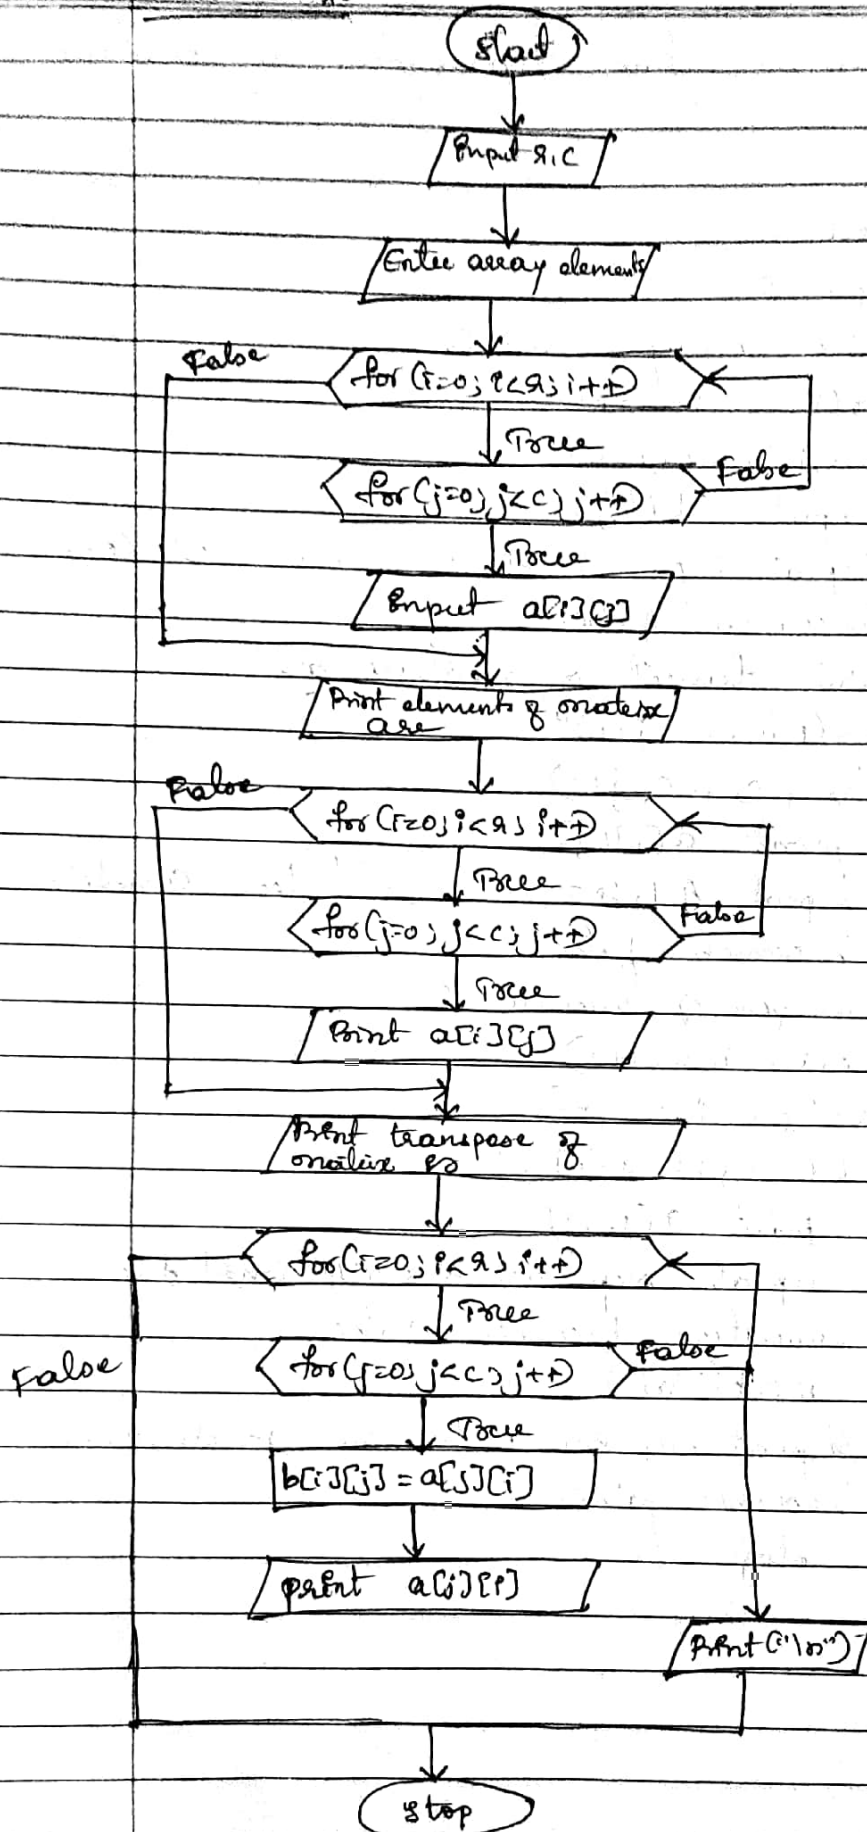 Start
Input r,c
Enter array elements
False
for (i=0; i<r; i++)
True
False
for (j=0; j<c; j++)
True
Input a[i][j]
Print elements of matrix
are
False
for (i=0; i<r; i++)
True
False
for (j=0; j<c; j++)
True
Print a[i][j]
Print transpose of
matrix is
for (i=0; i<r; i++)
True
False
False
for (j=0; j<c; j++)
True
b[i][j] = a[j][i]
print a[j][i]
Print("\n")
stop